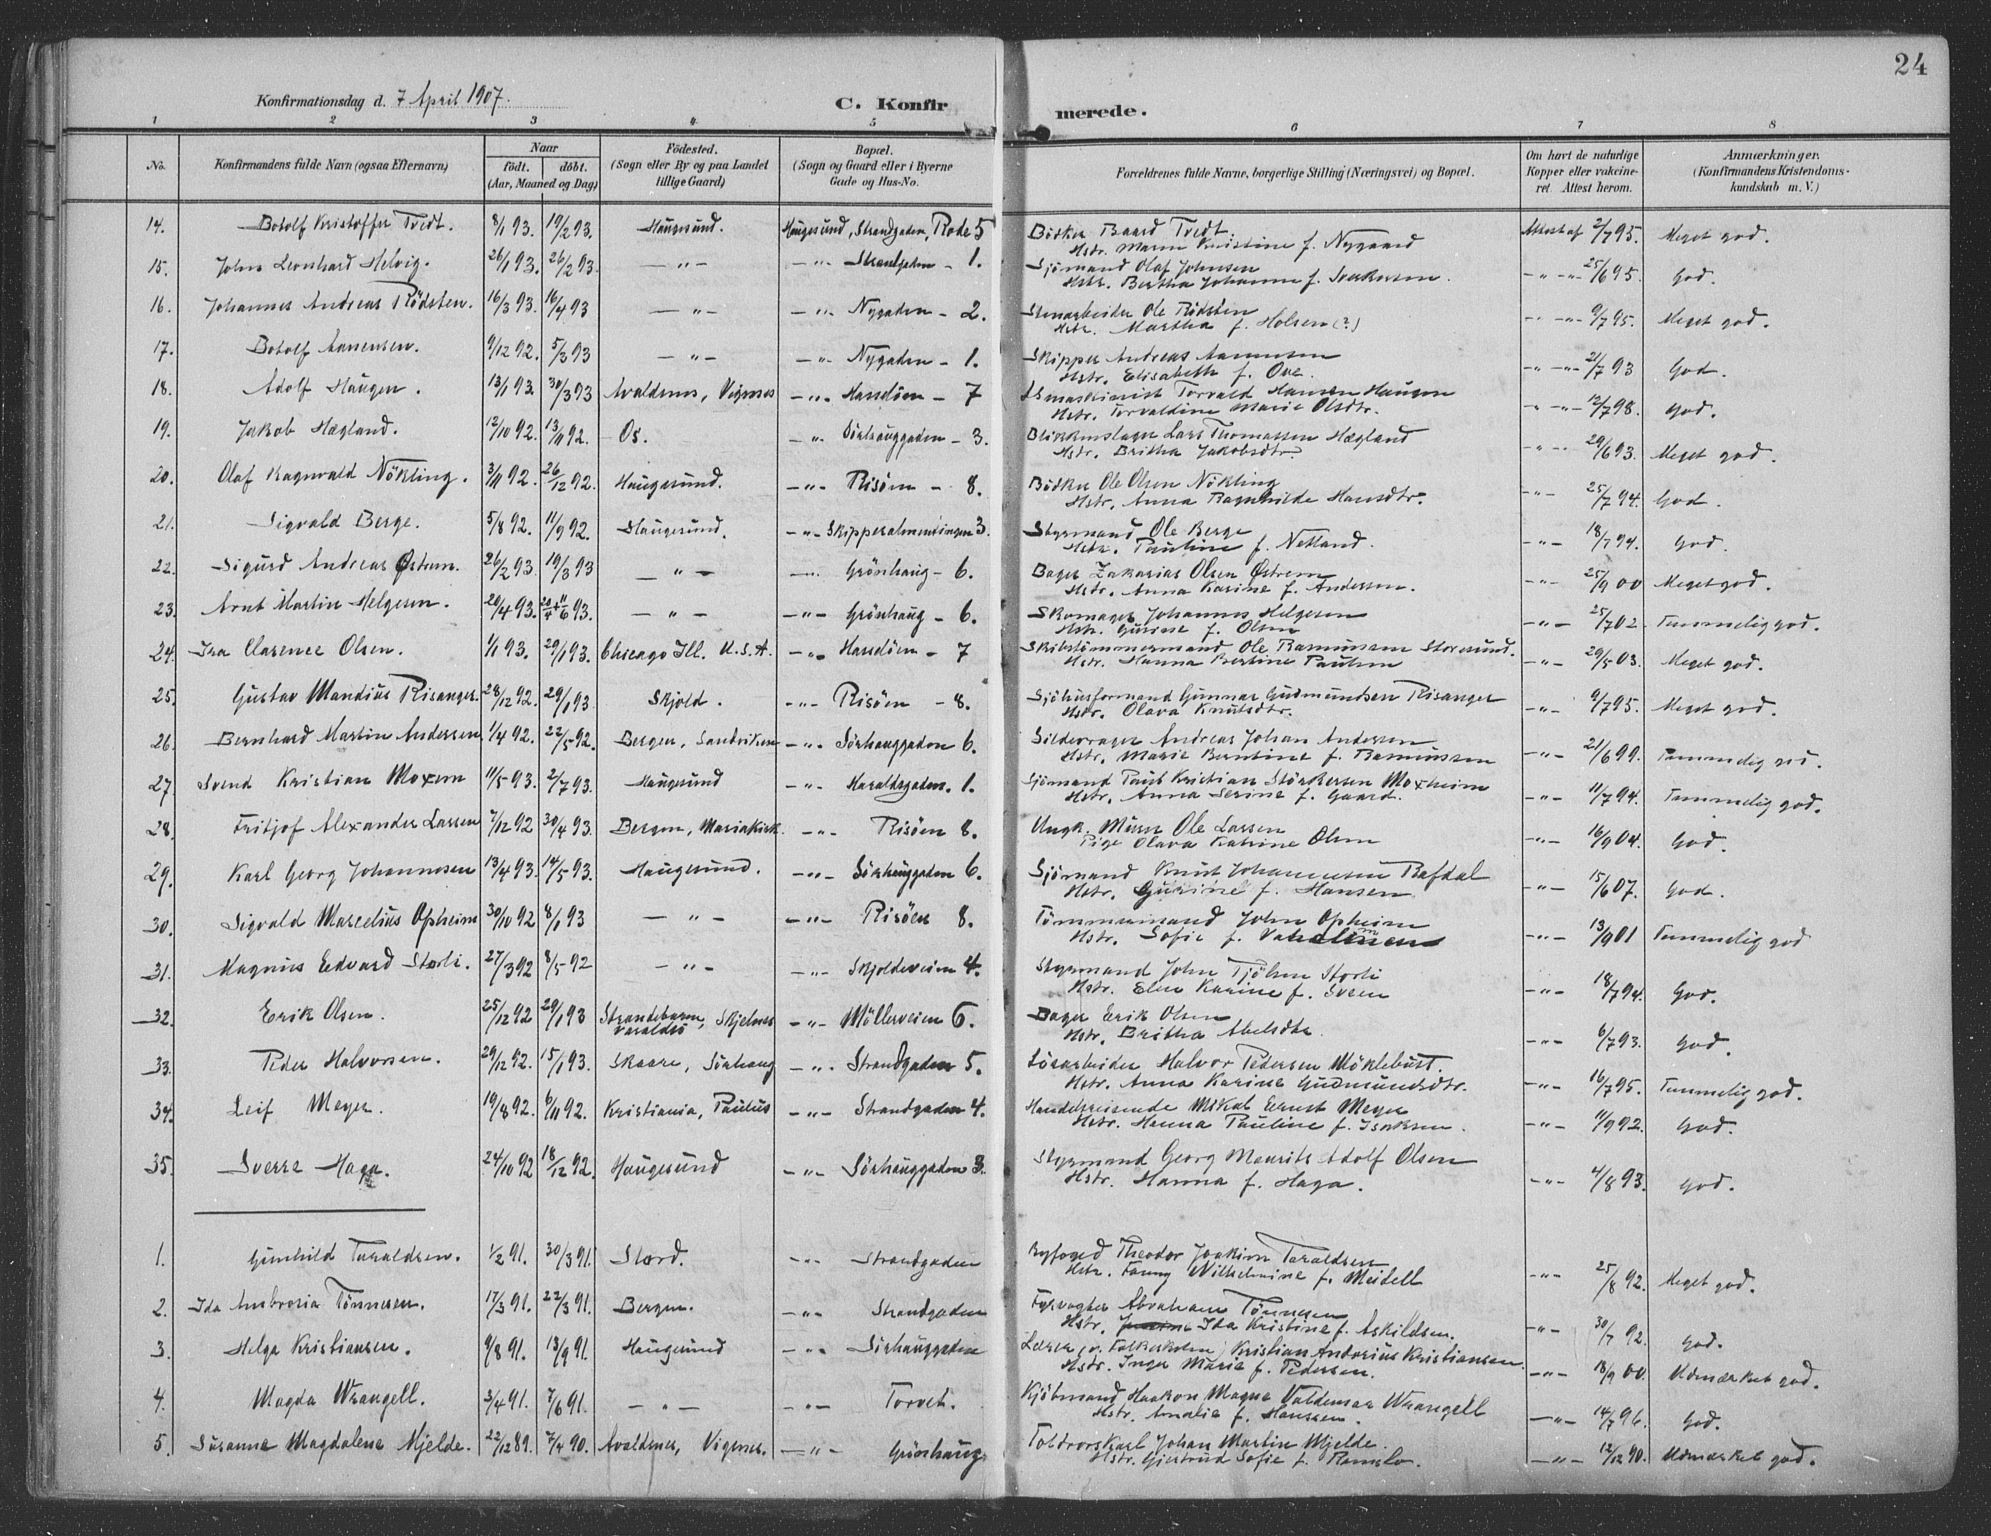 24
Konfirmationsdag d. 7 April 1907.
C. Konfirmerede.
1 2 3 4 5 6 7 8
No. Konfirmandens fulde Navn (ogsaa Efternavn) Naar født. døbt. (Aar, Maaned og Dag) Fødested. (Sogn eller By og paa Landet tillige Gaard) Bopæl. (Sogn og Gaard eller i Byerne Gade og Hus-No. Forældrenes fulde Navne, borgerlige Stilling (Næringsvei) og Bopæl. Om havt de naturlige Kopper eller vaccineret. Attest herom. Anmærkninger. (Konfirmandens Kristendomskundskab m. V.)
14. Botolf Kristoffer Tvedt. 8/1 93. 19/2 93. Haugesund. Haugesund, Strandgaden, Rode 5 Bödker Baard Tvedt. Attest af 2/7 95. Meget god.
Hstr. Maren Kristine f. Nygaard
15. John Leonhard Helvig. 26/1 93. 26/2 93. —"— —"— Strandgaden - 1. Sjömand Olaf Johnsen —"— 25/6 95. God.
Hstr. Bertha Johanne f.
16. Johannes Andreas Rödsten. 16/3 93. 16/4 93 —"— —"— Nygaden - 2. Stenarbeider Ole Rödsten —"— 9/7 95. Meget god.
Hstr. Martha f. Holsen (?)
17. Botolf Aanensen. 9/12 92. 5/3 93 —"— —"— Nygaden - 1. Skipper Andreas Aanensen —"— 21/7 93 God.
Hstr. Elisabeth f. Ove.
18. Adolf Haugen. 13/1 93. 30/3 93 Avaldsnes, Vigsnes —"— Hasselöen - 7 Torvald Hansen Haugen —"— 12/7 98. God.
Hstr. Torvaldine Marie Olsdtr.
19. Jakob Hægland. 12/10 92. 13/11 92. Os. —"— Sörhauggaden - 3. Blikkenslager Lars Thomassen Hægland —"— 29/6 93. Meget god.
Hstr. Britha Jakobsdtr.
20. Olaf Ragnvald Nökling. 3/11 92. 26/12 92. Haugesund. —"— Risöen - 8. Bödker Ole Olsen Nökling —"— 25/7 94. God.
Hstr. Anna Ragnhilde Hansdtr.
21. Sigvald Berge. 5/8 92. 11/9 92. Haugesund. —"— Skipperalmenningen 3. Styrmand Ole Berge —"— 18/7 94. God.
Hstr. Pauline f. Netland.
22. Sigurd Andreas Østrem. 26/2 93. 19/3 93 —"— —"— Grönhaug - 6. Bager Zakarias Olsen Østrem —"— 25/9 00 Meget god.
Hstr. Anna Karine f. Andersen.
23. Arnt Martin Helgesen. 20/4 93. 20/4 + 11/6 93. —"— —"— Grönhaug - 6. Skomager Johannes Helgesen —"— 25/7 02. Temmelig god.
Hstr. Gurine f. Olsen
24. Ira Clarence Olsen. 1/1 93. 29/1 93. Chicago Ill. U.S.A. —"— Hasselöen - 7 Skibstömmermand Ole Rasmussen Storesund. —"— 29/5 03. Meget god.
Hstr. Hanna Bertine Paulsen
25. Gustav Mandius Risanger. 28/12 92. 29/1 93. Skjold. —"— Risöen - 8. Sjöhusformand Gunnar Gudmundsen Risanger —"— 9/7 95. Meget god.
Hstr. Olava Knutsdtr.
26. Bernhard Martin Andersen 1/4 92. 22/5 92. Bergen, Sandviken —"— Sörhauggaden 6. Sildevrager Andreas Johan Andersen —"— 21/6 99. Temmelig god.
Hstr. Marie Berntine f. Rasmussen
27. Svend Kristian Moxem 11/5 93. 2/7 93. Haugesund —"— Haraldsgaden. 1. Sjömand Paul Kristian Störkersen Moxheim —"— 11/7 94. Temmelig god.
Hstr. Anna Serine f. Gaard.
28. Fritjof Alexander Larsen 7/12 92 30/4 93. Bergen, Mariakirk. —"— Risöen 8. Ungk. Murer Ole Larsen —"— 16/9 04. God.
Pige Olava Katrine Olsen
29. Karl Georg Johannesen 13/4 93. 14/5 93. Haugesund. —"— Sörhauggaden 6. Sjömand Knut Johannesen Rafdal —"— 15/6 07. God.
Hstr. Gurine f. Hansen
30. Sigvald Marcelius Opheim 30/10 92 8/1 93 —"— —"— Risöen 8. Tömmermand John Opheim —"— 13/9 01 Temmelig god
Hstr. Sofie f.
31. Magnus Edvard Storli. 27/3 92 8/5 92 —"— —"— Skjoldeveien 4. Styrmand John Tjölsen Storli —"— 18/7 94. God.
Hstr. Elen Karine f. Sveen
32. Erik Olsen. 25/12 92 29/1 93 Strandebarm, Skjelnes Varaldsö —"— Möllerveien 6. Bager Erik Olsen —"— 6/7 93. God.
Hstr. Britha Abelsdtr.
33. Peder Halvorsen. 29/12 92. 15/1 93. Skaare, Sörhaug —"— Strandgaden 5. Lösarbeider Halvor Pedersen Möklebust. —"— 16/7 95. Temmelig god.
Hstr. Anna Karine Gudmundsdtr.
34. Leif Meyer. 19/8 92. 6/11 92. Kristiania, Paulus —"— Strandgaden 4. Handelsreisende Mikal Ernst Meyer —"— 11/9 92. God.
Hstr. Hanna Pauline f. Isaksen.
35. Sverre Haga. 24/10 92 18/12 92. Haugesund —"— Sörhauggaden 3. Styrmand Georg Maurits Adolf Olsen —"— 4/8 93. God.
Hstr. Hanna f. Haga.
1. Gunhild Taraldsen. 1/2 91. 30/3 91. Stord. —"— Strandgaden Byfoged Theodor Joakim Taraldsen —"— 25/8 92. Meget god.
Hstr. Fanny Wilhelmine f. Meidell
2. Ida Ambrosia Tönnesen. 17/3 91. 22/3 91. Bergen. —"— Strandgaden Fyrvogter Abraham Tönnesen —"— 30/7 92. God.
Hstr. Ida Kristine f. Askildsen.
3. Helga Kristiansen. 9/8 91. 13/9 91. Haugesund —"— Sörhauggaden Lærer (v. Folkeskolen) Kristian Andorius Kristiansen —"— 18/9 00. Udmærket god.
Hstr. Inger Marie f. Pedersen.
4. Magda Wrangell. 3/4 91. 7/6 91. —"— —"— Torvet. Kjöbmand Haakon Magnus Valdemar Wrangell —"— 14/7 96. God.
Hstr. Amalie f. Hanssen.
5. Susanne Magdalene Mjelde. 22/12 89. 7/4 90. Avaldsnes, Vigsnes. —"— Grönhaug Toldrorskarl Johan Martin Mjelde. —"— 12/12 90. Udmærket god.
Hstr. Gjertrud Sofie f. Ramslo.